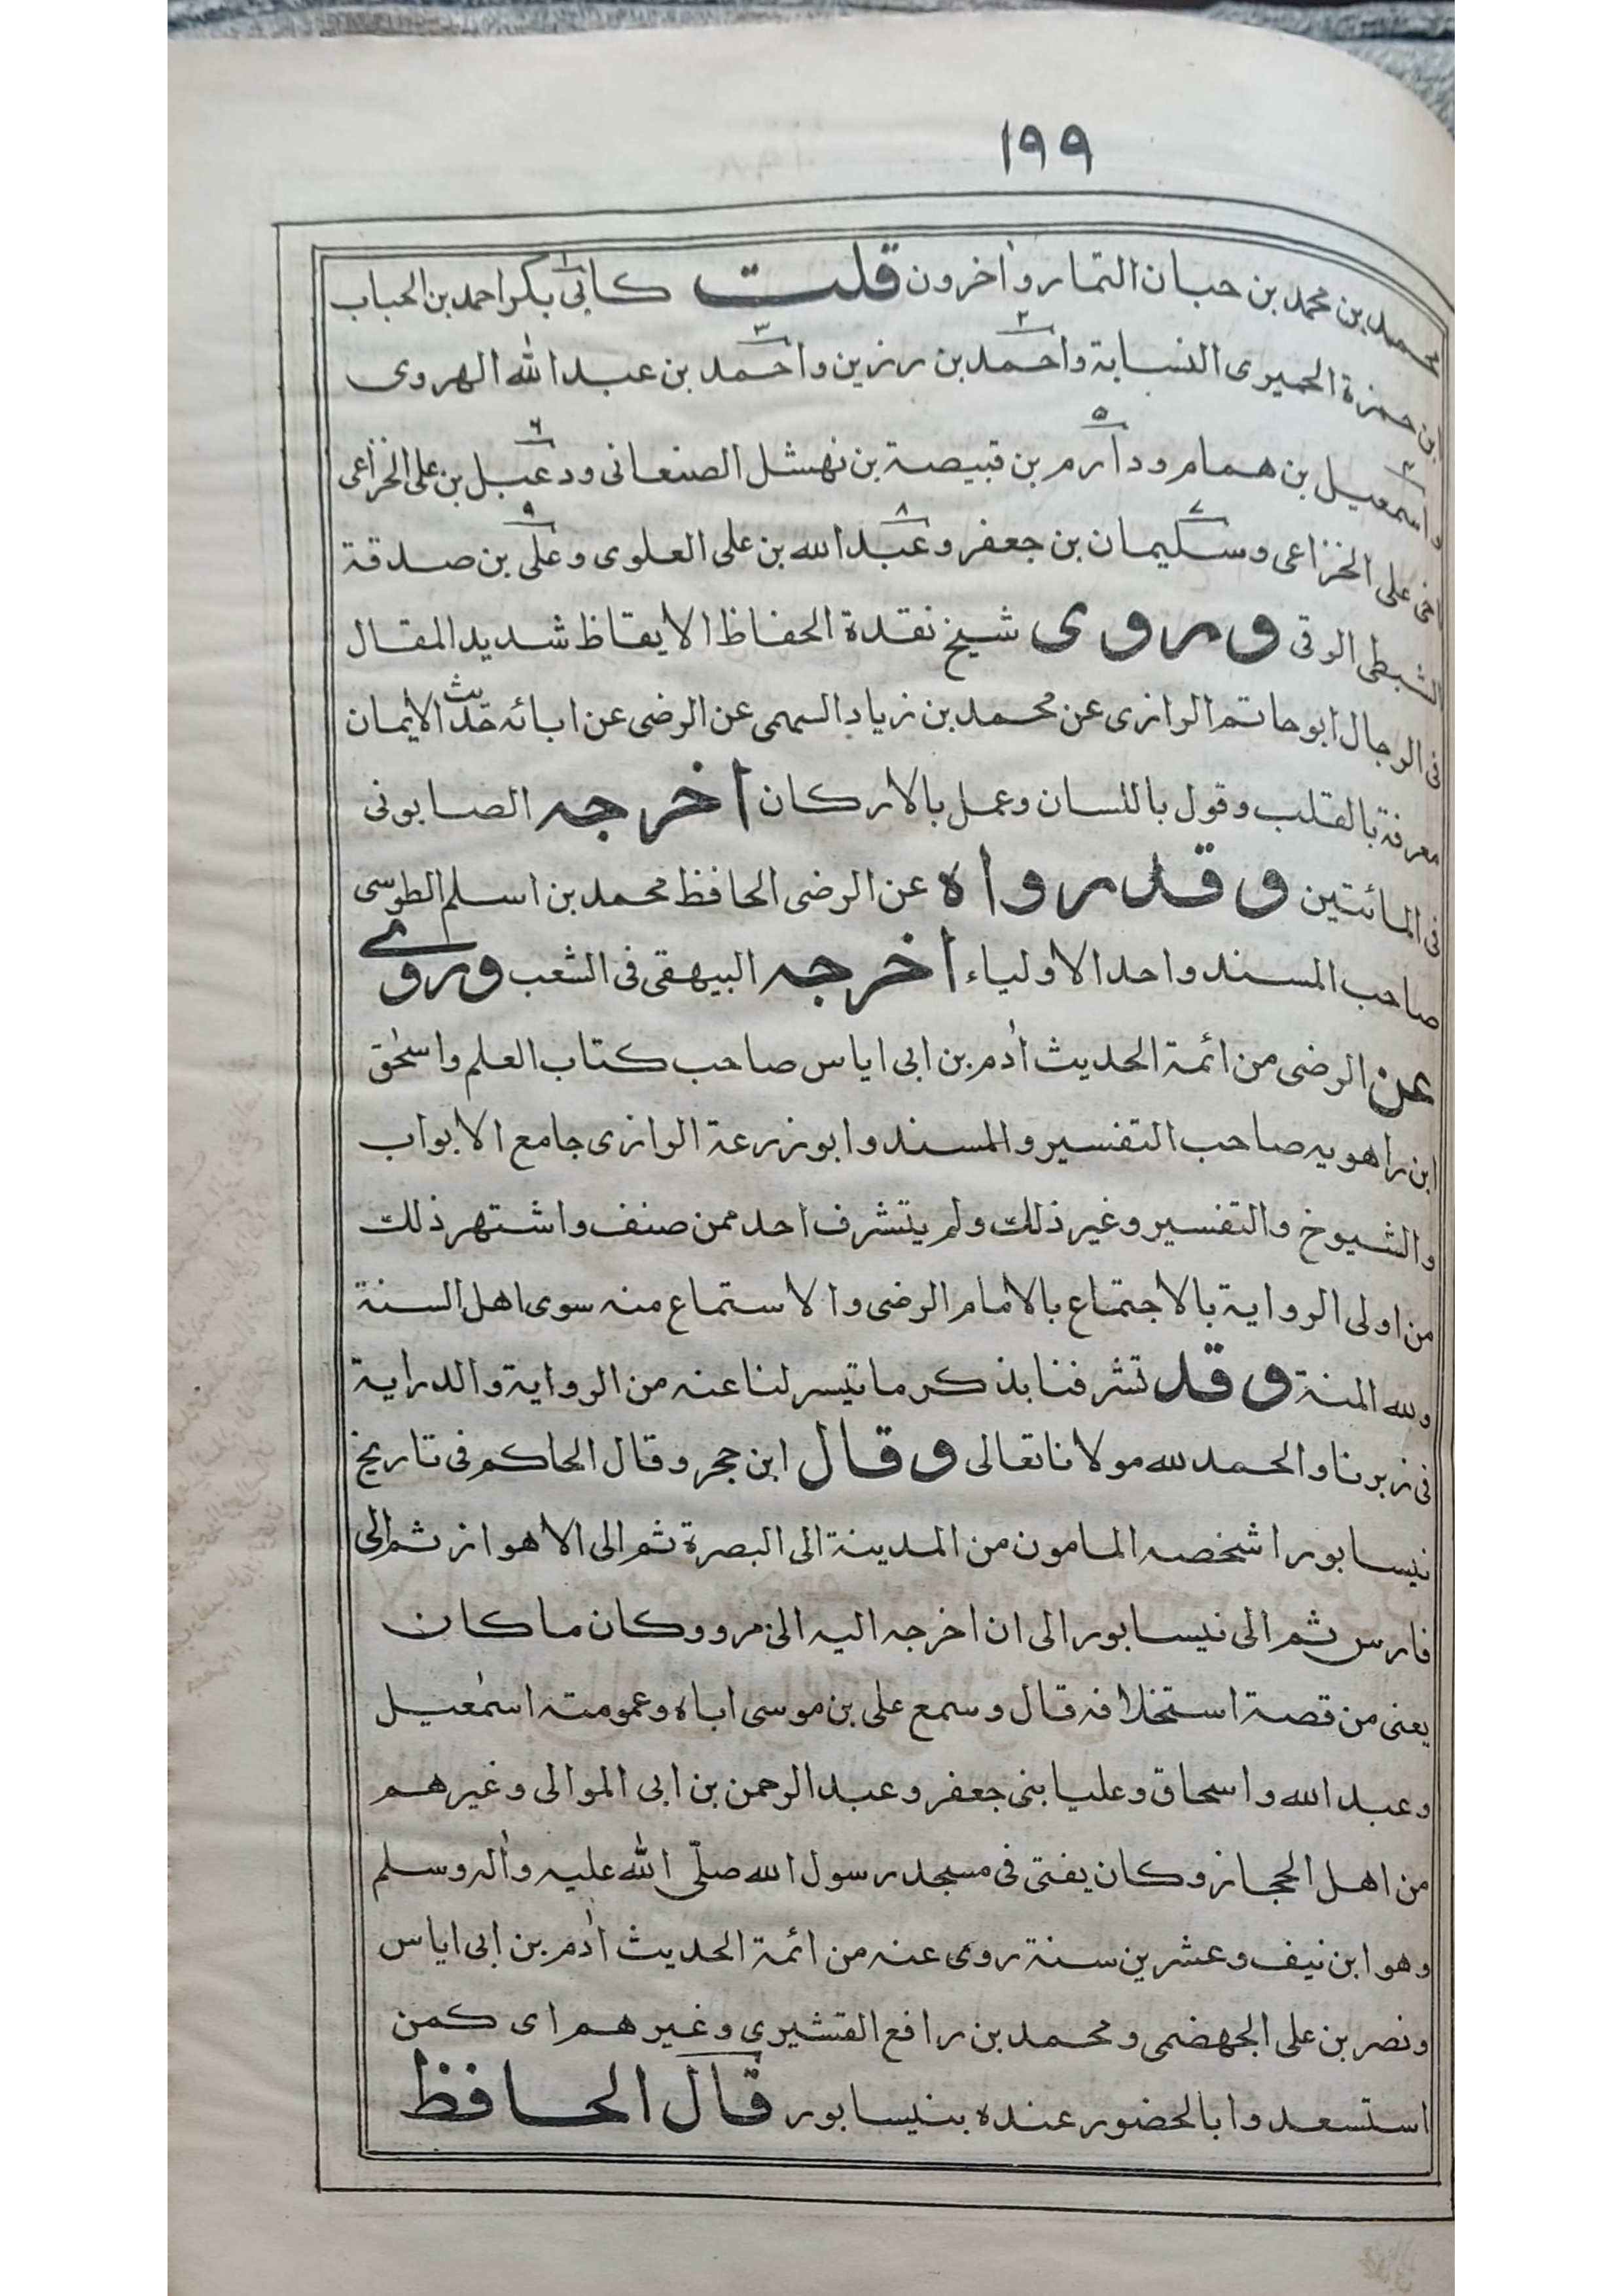 ١٩٩
محمد بن محمد بن حبان التمار واخرون قلت كابى بكر احمد بن الحباب
ابن حمزة الحميرى النسابة واحمد بن رزين واحمد بن عبد الله الهروى
واسمعيل بن همام ودارم بن قبيصة بن نهشل الصنعانى ودعبل بن على الخزاعى
اخى على الخزاعى وسليمان بن جعفر وعبد الله بن على العلوى وعلى بن صدقة
الشبطى الرقى وروى شيخ نقدة الحفاظ الايقاظ شديد المقال
فى الرجال ابو حاتم الرازى عن محمد بن زياد السهمى عن الرضى عن ابائه حديث الايمان
معرفة بالقلب وقول باللسان وعمل بالاركان اخرجه الصابونى
فى المائتين وقد رواه عن الرضى الحافظ محمد بن اسلم الطوسى
صاحب المسند واحد الاولياء اخرجه البيهقى فى الشعب وروى
عن الرضى من ائمة الحديث أدم بن ابى اياس صاحب كتاب العلم واسحٰق
ابن راهويه صاحب التفسير والمسند وابو زرعة الرازى جامع الابواب
والشيوخ والتفسير وغير ذلك ولم يتشرف احد ممن صنف واشتهر ذلك
من اولى الرواية بالاجتماع بالامام الرضى والاستماع منه سوى اهل السنة
ولله المنة وقد تشرفنا بذكر ما تيسر لنا عنه من الرواية والدراية
فى زبرنا والحمد لله مولانا تعالى وقال ابن حجر وقال الحاكم فى تاريخ
نيسابور اشخصه المامون من المدينة الى البصرة ثم الى الاهواز ثم الى
فارس ثم الى نيسابور الى ان اخرجه اليه الى مرو وكان ما كان
يعنى من قصة استخلافه قال وسمع على بن موسى اباه وعمومته اسمٰعيل
وعبد الله واسحاق وعليا بنى جعفر وعبد الرحمن بن ابى الموالى وغيرهم
من اهل الحجاز وكان يفتى فى مسجد رسول الله صلّى الله عليه وأله وسلم
وهو ابن نيف وعشرين سنة روى عنه من ائمة الحديث أدم بن ابى اياس
ونصر بن على الجهضمى ومحمد بن رافع القشيرى وغيرهم اى كمن
استسعدوا بالحضور عنده بنيسابور قال الحافظ